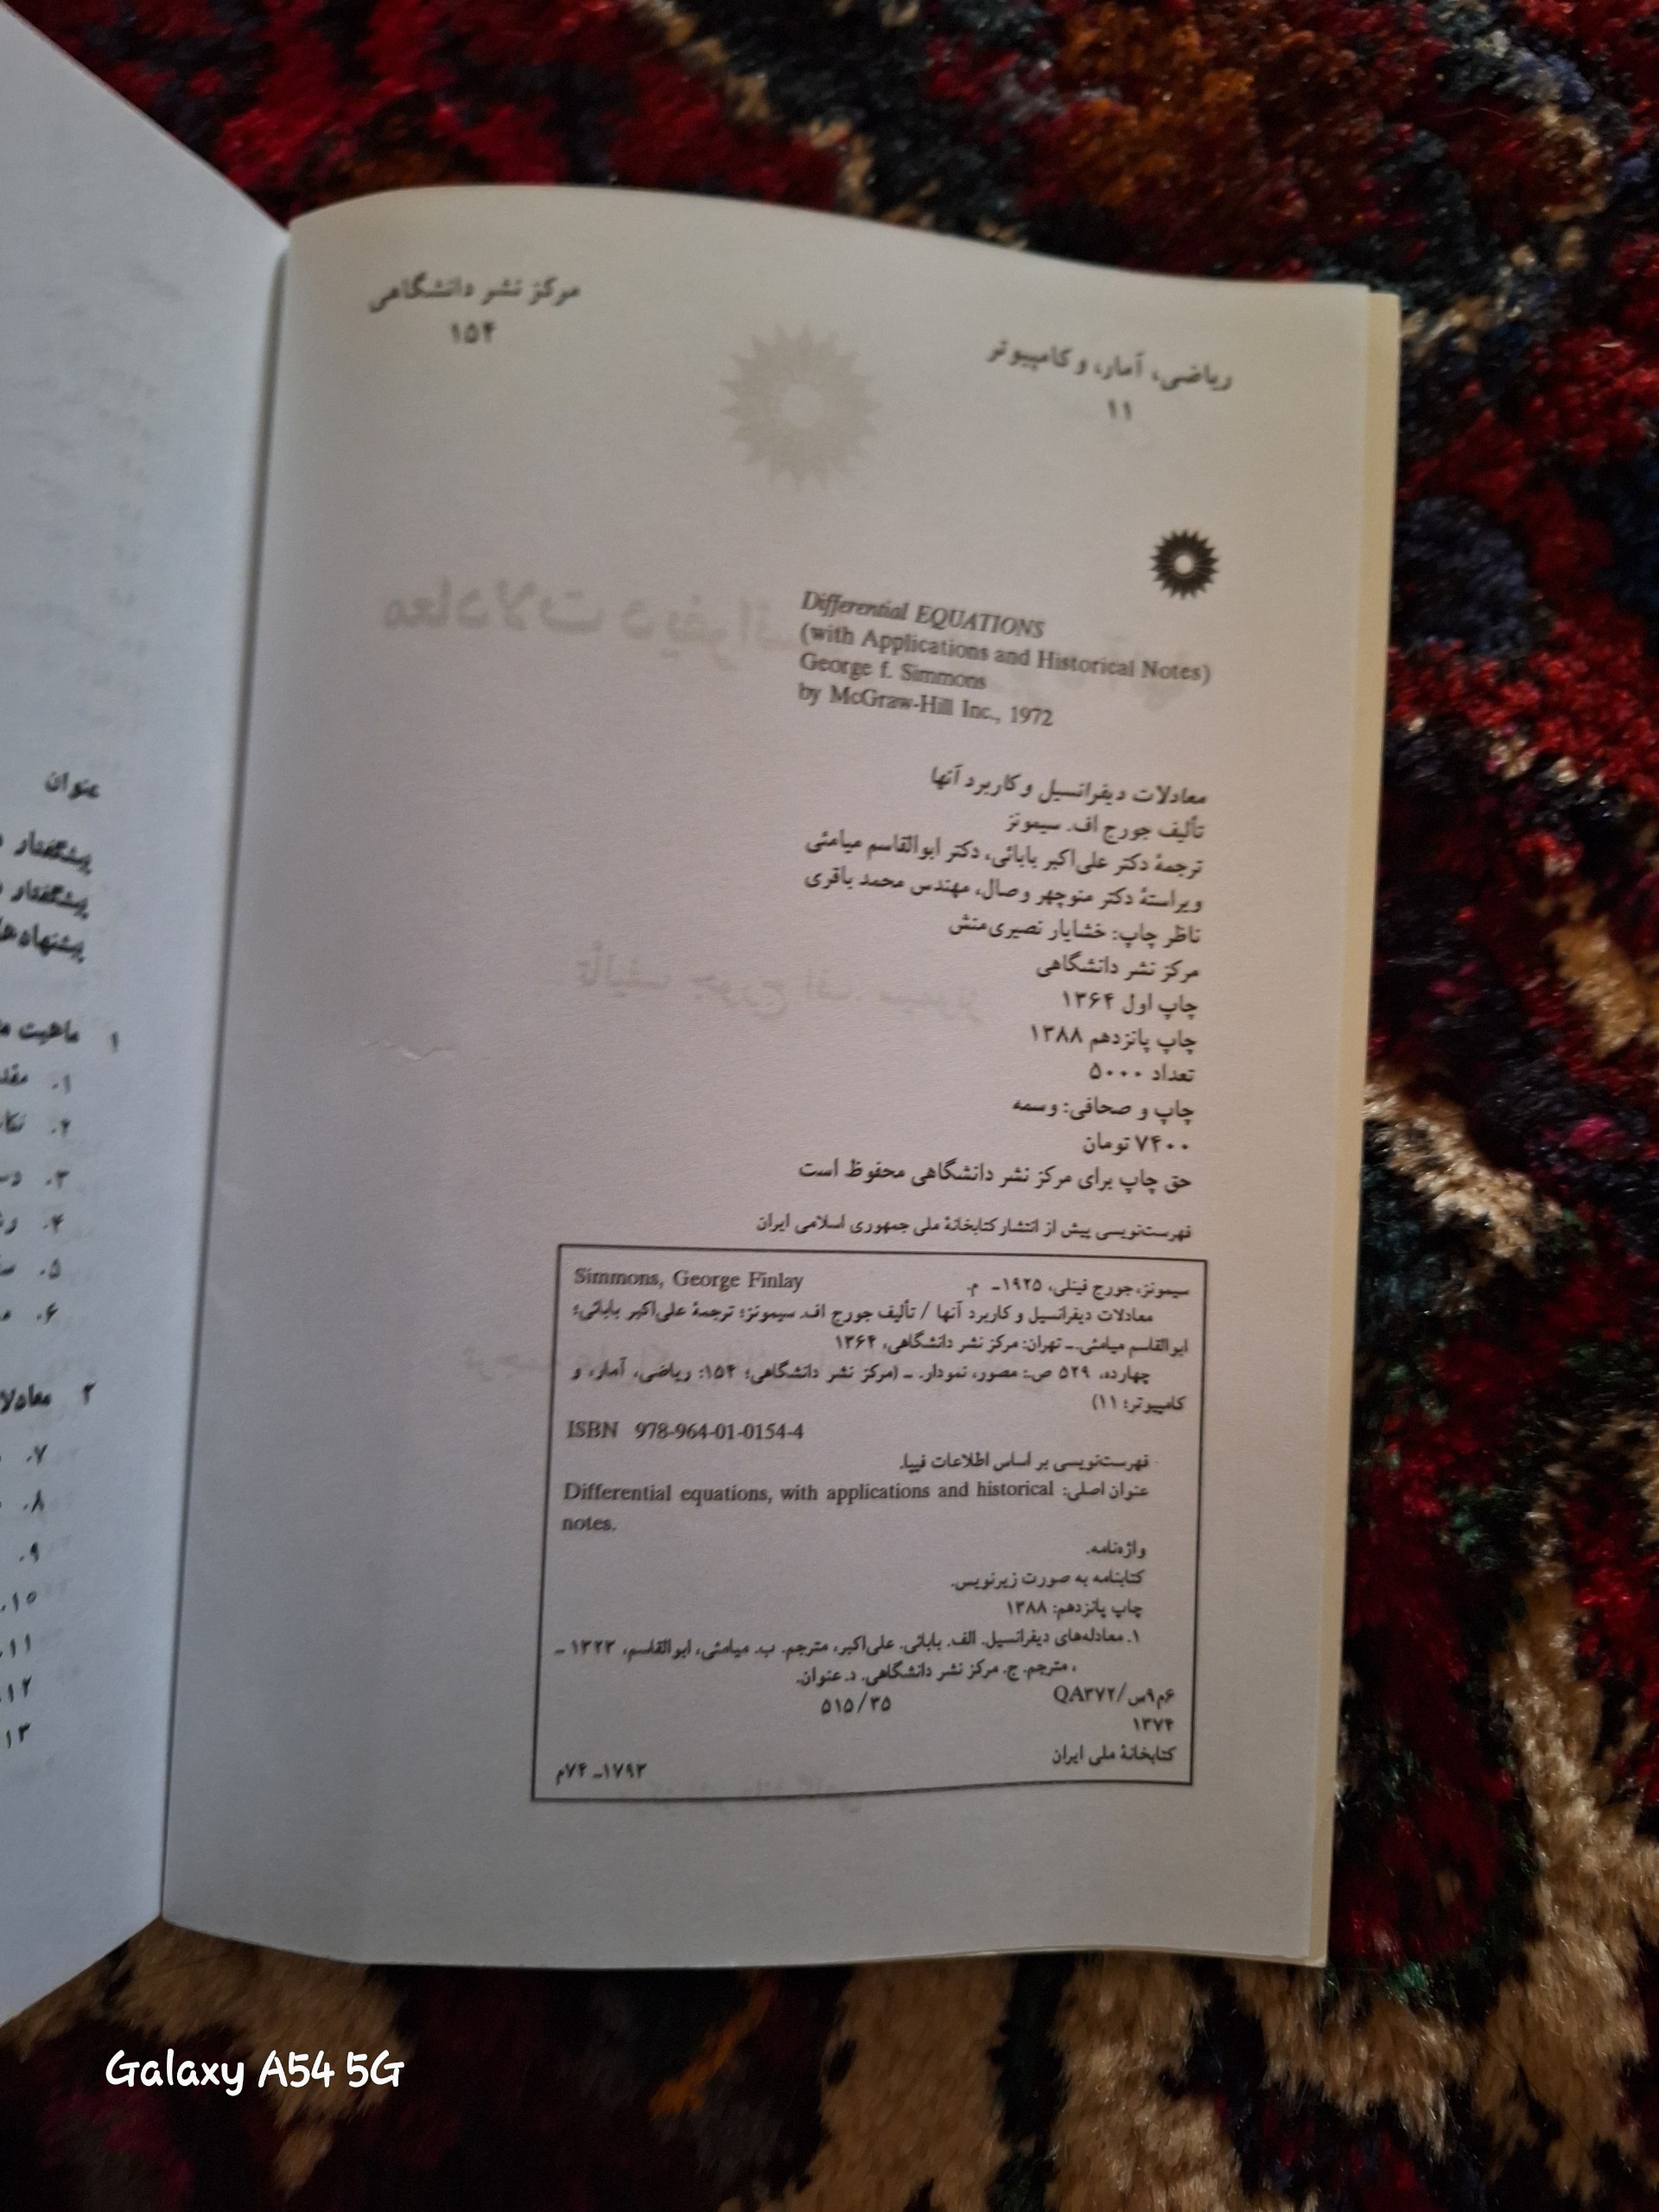 مرکز نشر دانشگاهی
۱۵۴
ریاضی، آمار، و کامپیوتر
۱۱
Differential EQUATIONS
(with Applications and Historical Notes)
George f. Simmons
by McGraw-Hill Inc., 1972
معادلات دیفرانسیل و کاربرد آنها
تألیف جورج اف. سیمونز
ترجمهٔ دکتر علی‌اکبر بابائی، دکتر ابوالقاسم میامئی
ویراستهٔ دکتر منوچهر وصال، مهندس محمد باقری
ناظر چاپ: خشایار نصیری‌منش
مرکز نشر دانشگاهی
چاپ اول ۱۳۶۴
چاپ پانزدهم ۱۳۸۸
تعداد ۵۰۰۰
چاپ و صحافی: وسمه
۷۴۰۰ تومان
حق چاپ برای مرکز نشر دانشگاهی محفوظ است
فهرست‌نویسی پیش از انتشار کتابخانهٔ ملی جمهوری اسلامی ایران
سیمونز، جورج فینلی، ۱۹۲۵ـ م. Simmons, George Finlay
معادلات دیفرانسیل و کاربرد آنها / تألیف جورج اف. سیمونز؛ ترجمهٔ علی‌اکبر بابائی؛
ابوالقاسم میامئی. ـ تهران: مرکز نشر دانشگاهی، ۱۳۶۴
چهارده، ۵۲۹ ص.: مصور، نمودار. ـ (مرکز نشر دانشگاهی؛ ۱۵۴: ریاضی، آمار، و
کامپیوتر؛ ۱۱)
ISBN 978-964-01-0154-4
فهرست‌نویسی بر اساس اطلاعات فیپا.
عنوان اصلی: Differential equations, with applications and historical
notes.
واژه‌نامه.
کتابنامه به صورت زیرنویس.
چاپ پانزدهم: ۱۳۸۸
۱. معادله‌های دیفرانسیل. الف. بابائی. علی‌اکبر، مترجم. ب. میامئی، ابوالقاسم، ۱۳۲۳ ـ
، مترجم. ج. مرکز نشر دانشگاهی. د. عنوان.
۶م۹س/QA۳۷۲ ۵۱۵/۳۵
۱۳۷۴
کتابخانهٔ ملی ایران ۱۷۹۳ـ۷۴م
عنوان
پیشگفتار
پیشگفتار
۱ ماهیت
۱.
۲.
۳.
۴.
۵.
۶.
۲
۷.
۸.
۹.
۱۰.
۱۱.
۱۲.
۱۳
Galaxy A54 5G